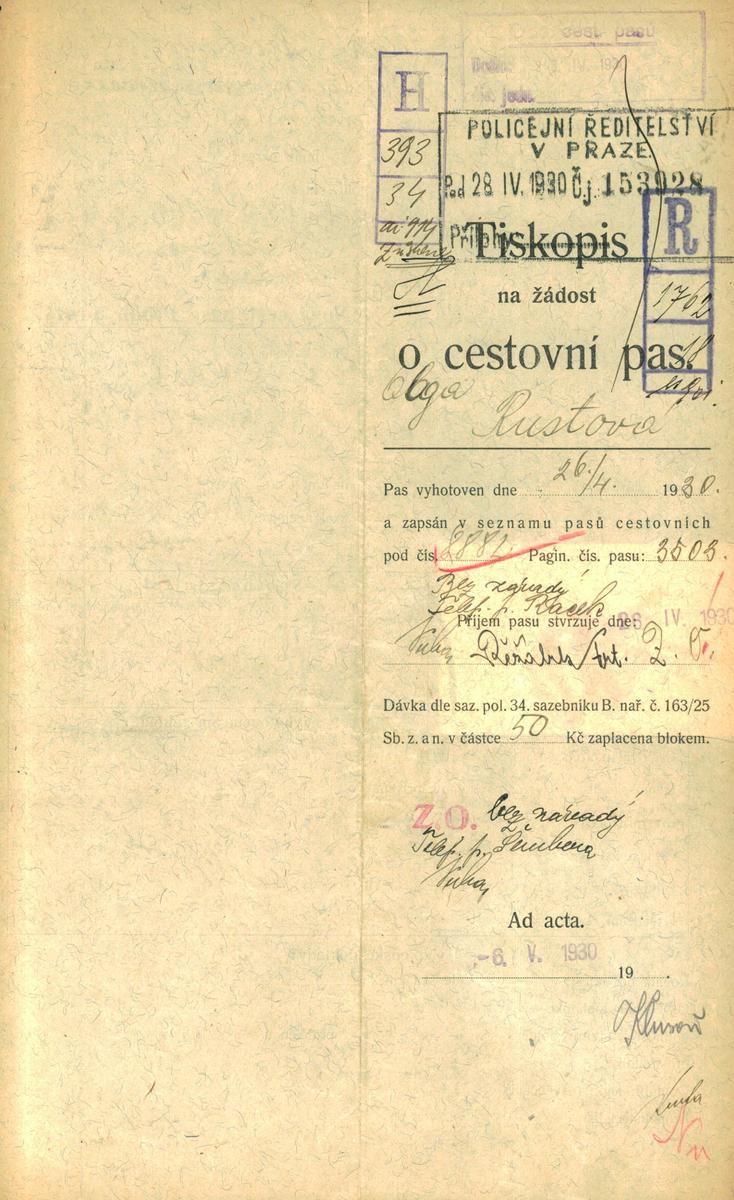 cest. pasů
IV. 1930
H
393
34
POLICEJNÍ ŘEDITELSTVÍ
V PRAZE
28 IV. 1930 Čj. 153928
Příloh
R
1762
18
Tiskopis
na žádost
o cestovní pas.
Olga
Rustová
Pas vyhotoven dne 26./4. 1930.
a zapsán v seznamu pasů cestovních
pod čís. 2882. Pagin. čís. pasu: 3503.
Bez závady
Telef. p. Racek
Příjem pasu stvrzuje dne: 26. IV. 1930
Dávka dle saz. pol. 34. sazebníku B. nař. č. 163/25
Sb. z. a n. v částce 50 Kč zaplacena blokem.
Z.O. bez závady
Telef. p.
Ad acta.
-6. V. 1930
19 .